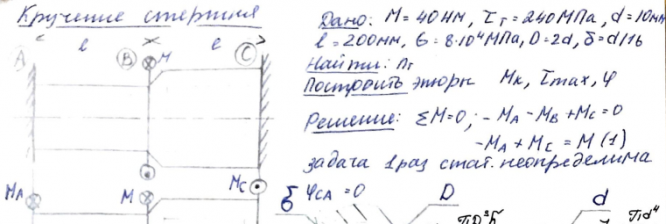 Кручение стержня
Дано: М = 40 Нм, τт = 240 МПа, d = 10мм
l = 200мм, G = 8·10⁴ МПа, D = 2d, δ = d/16
Найти: nт
Построить эпюры Мк, τmax, φ
Решение: ΣМ=0; -МА -МВ +МС = 0
-МА + МС = М (1)
задача 1 раз стат. неопределима
l l
А В М С
МА М МС
б φСА = 0 D d
πD²δ πd⁴